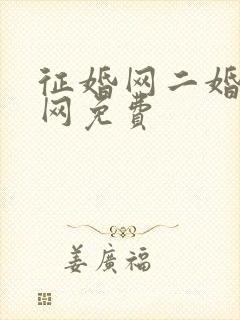 征婚网二婚
网免费
姜廣福